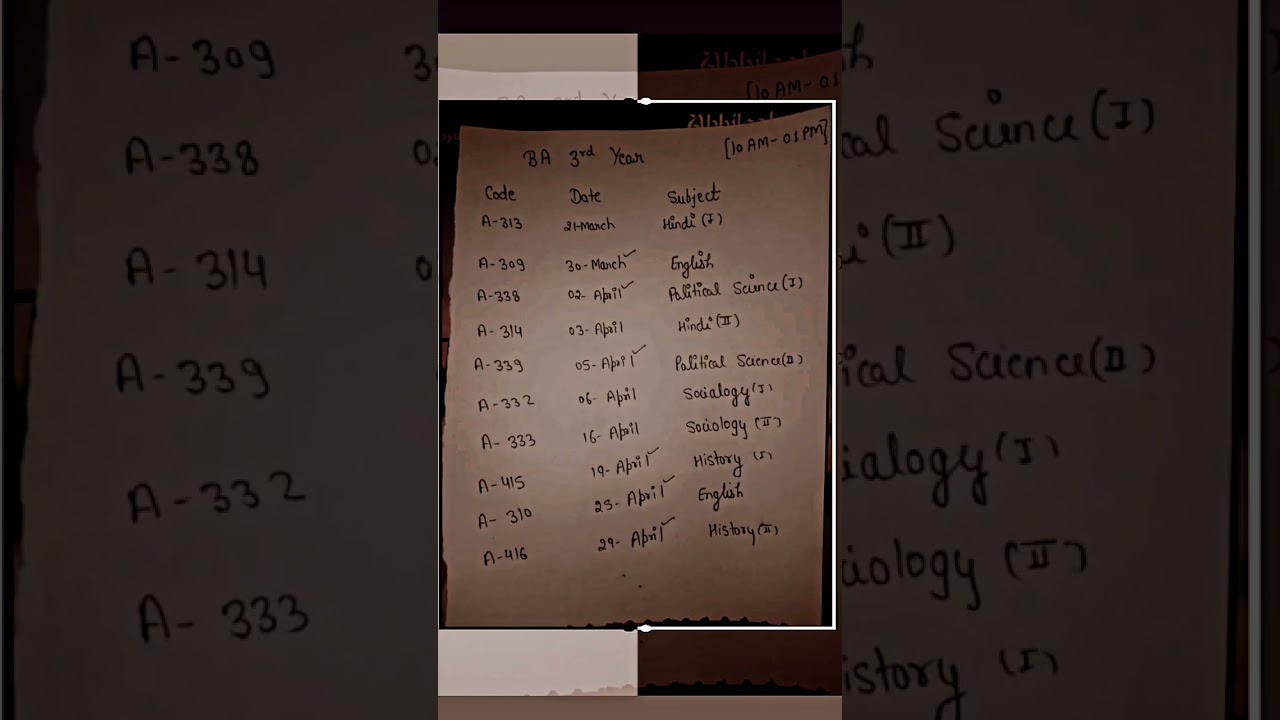 BA 3rd Year [10 AM - 01 PM]
Code Date Subject
A-313 21-March Hindi (I)
A-309 30-March✓ English
A-338 02-April✓ Political Science (I)
A-314 03-April Hindi (II)
A-339 05-April✓ Political Science (II)
A-332 06-April Socialogy (I)
A-333 16-April Sociology (II)
A-415 19-April✓ History (I)
A-310 25-April✓ English
A-416 29-April✓ History (II)